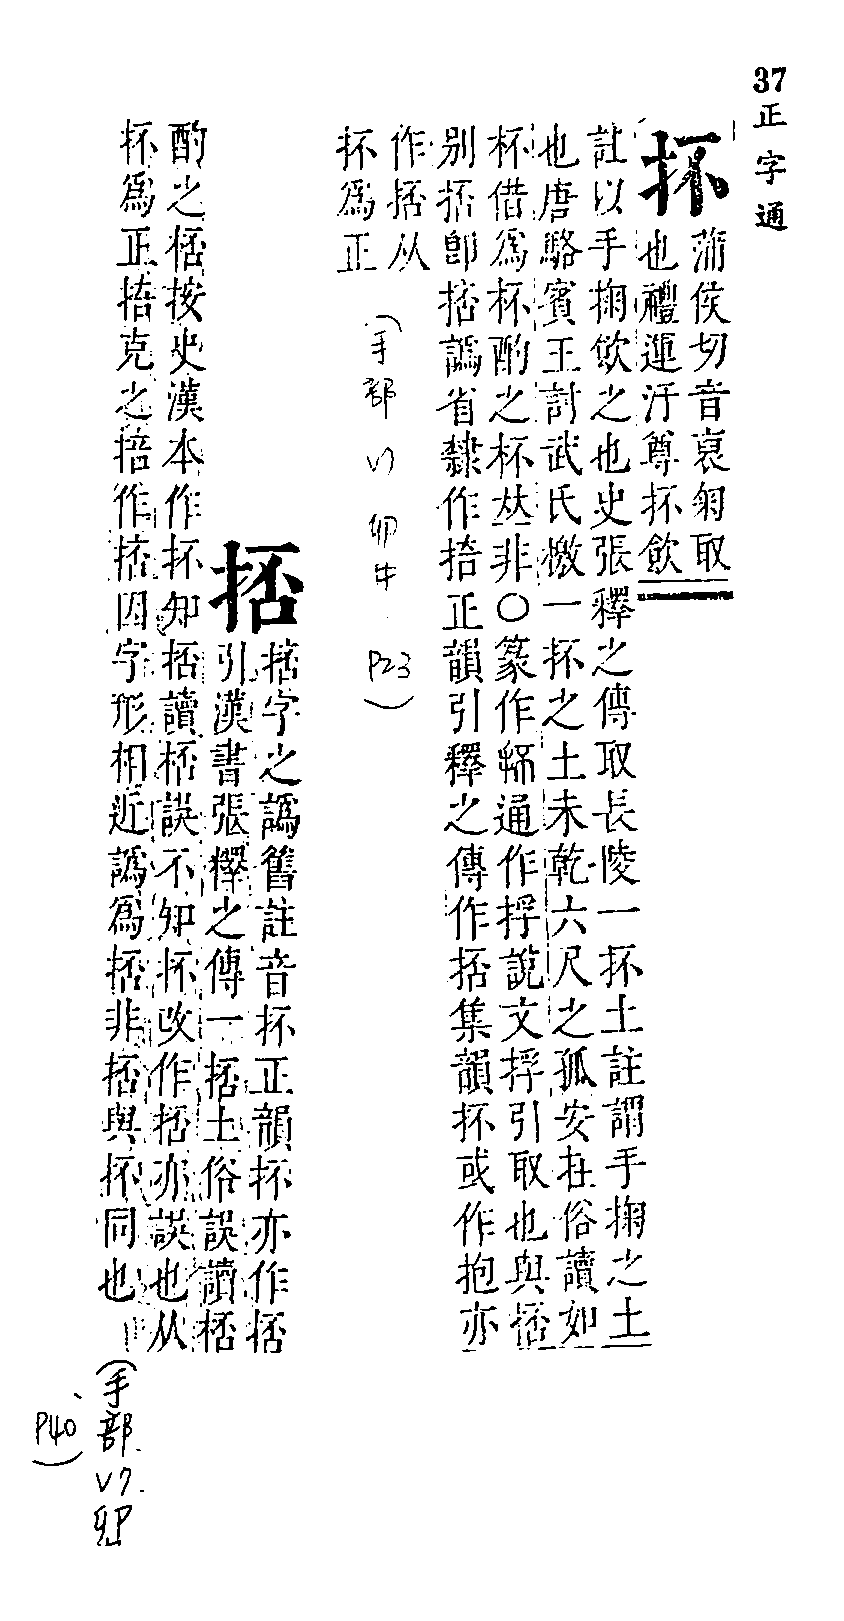 37
正字通
抔
蒲侯切音裒匊取
也禮運汙尊抔飲
註以手掬飲之也史張釋之傳取長陵一抔土註謂手掬之土
也唐駱賓王討武氏檄一抔之土未乾六尺之孤安在俗讀如
杯借爲杯酌之杯𠀤非○篆作通作捊說文捊引取也與㧵
别㧵卽㧵譌省隸作掊正韻引釋之傳作㧵集韻抔或作抱亦
作㧵从
抔爲正
(手部 V7 卯中 P23)
㧵
㧵字之譌舊註音抔正韻抔亦作㧵
引漢書張釋之傳一㧵土俗誤讀桮
酌之桮按史漢本作抔知㧵讀桮誤不知抔改作㧵亦誤也从
抔爲正掊克之掊作㧵四字形相近譌爲㧵非㧵與抔同也
(手部 V7 卯
P40)